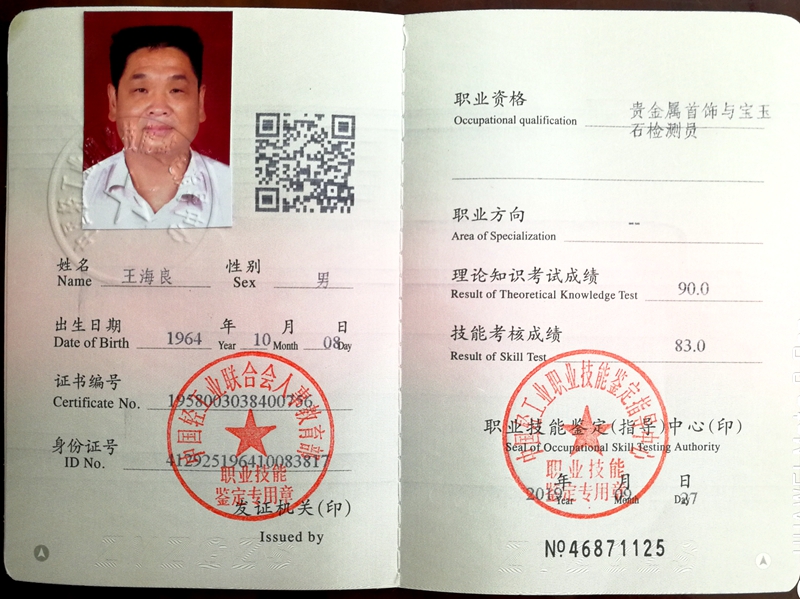 姓名 王海良 性别 男
Name Sex
出生日期 1964 年 10 月 08 日
Date of Birth Year Month Day
证书编号
Certificate No. 1958003038400756
身份证号
ID No. 412925196410083817
中国轻工业联合会人事教育部
职业技能
鉴定专用章
发证机关(印)
Issued by
职业资格 贵金属首饰与宝玉
Occupational qualification 石检测员
职业方向 --
Area of Specialization
理论知识考试成绩
Result of Theoretical Knowledge Test 90.0
技能考核成绩
Result of Skill Test 83.0
中国轻工业职业技能鉴定指导中心
职业技能鉴定(指导)中心(印)
Seal of Occupational Skill Testing Authority
职业技能
鉴定专用章
2019 年 09 月 27 日
Year Month Day
№46871125